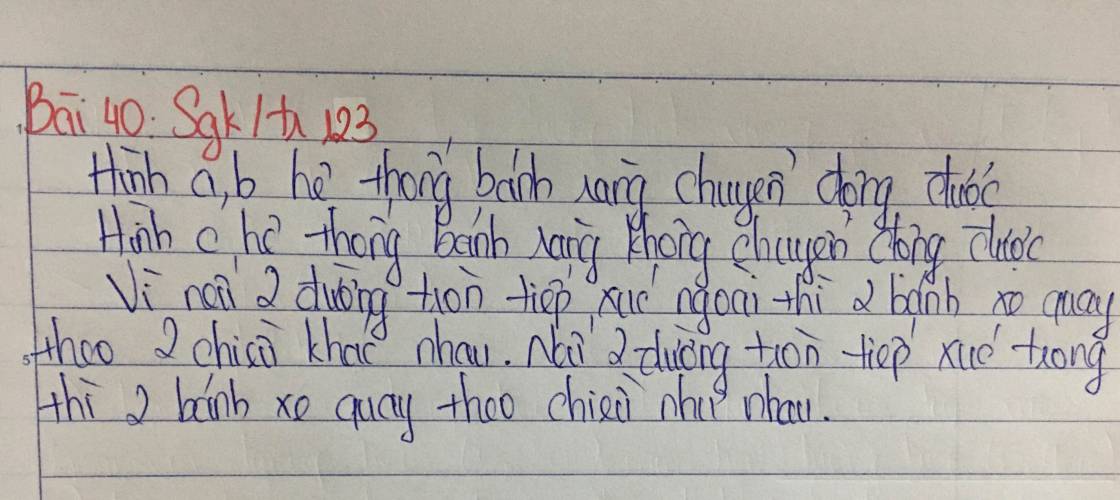 Bài 40: Sgk/tr 123
Hình a,b hệ thống bánh răng chuyển động được
Hình c hệ thống bánh răng không chuyển động được
Vì nếu 2 đường tròn tiếp xúc ngoài thì 2 bánh xe quay
theo 2 chiều khác nhau. Nếu 2 đường tròn tiếp xúc trong
thì 2 bánh xe quay theo chiều như nhau.